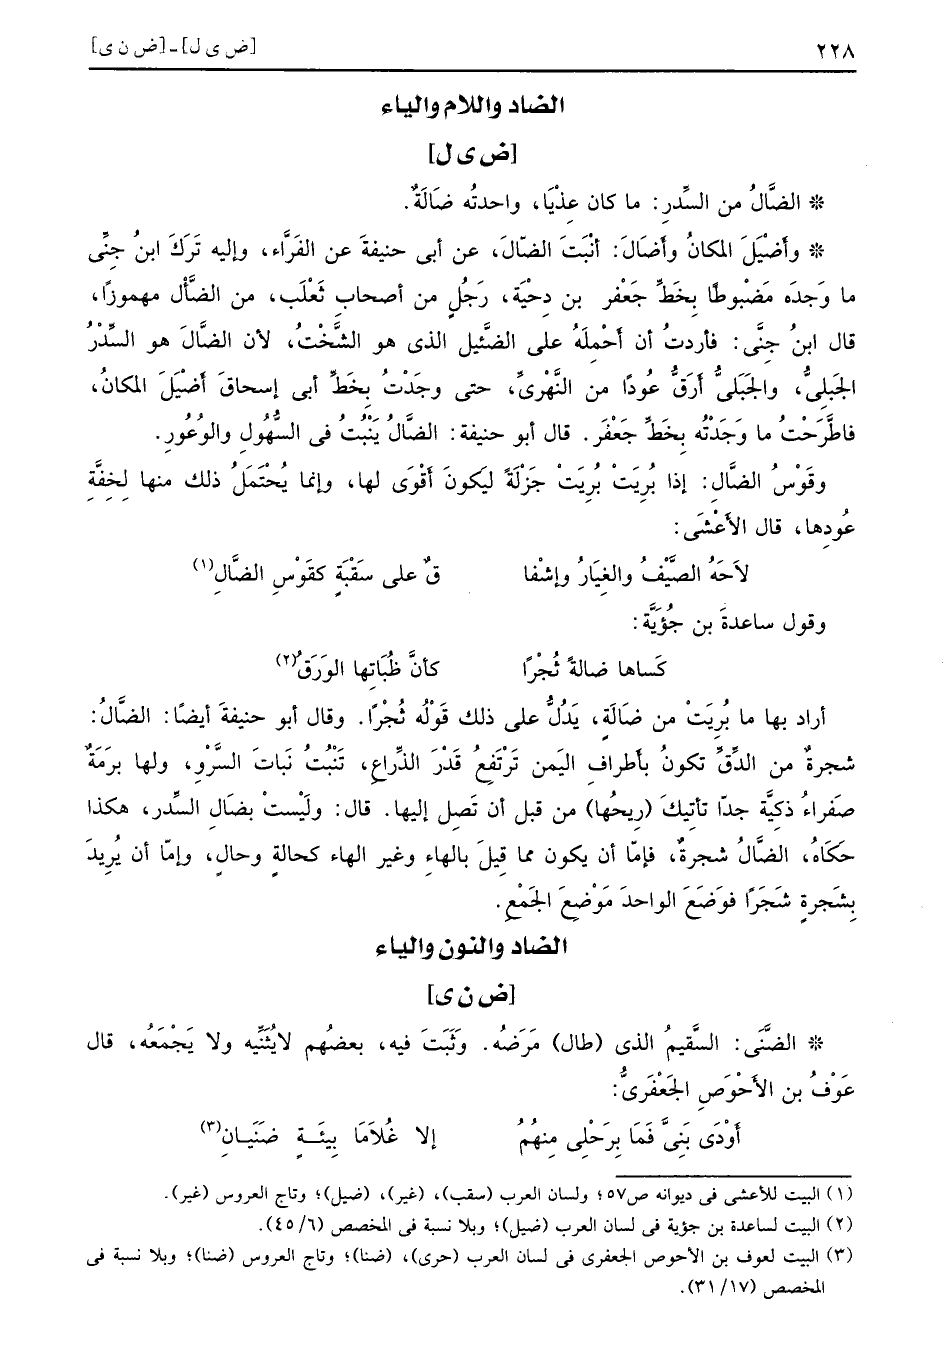 ٢٢٨ [ض ى ل] ـ [ض ن ى]
الضاد واللام والياء
[ض ى ل]
* الضَّالُ من السِّدرِ: ما كان عذْيًا، واحدتُه ضَالَةٌ.
* وأضْيَلَ المكانُ وأضَالَ: أنْبَتَ الضّالَ، عن أبى حنيفةَ عن الفَرَّاءِ، وإليه تَرَكَ ابنُ جنِّى
ما وَجَدَه مَضْبوطًا بِخَطِّ جَعْفرِ بن دحْيَة، رَجُلٍ من أصحابِ ثَعْلَب، من الضَّأْل مهموزًا،
قال ابنُ جنَّى: فأردتُ أن أحْمِلَهُ على الضئيل الذى هو الشَّخْتُ، لأن الضَّالَ هو السِّدْرُ
الجَبلىُّ، والجَبَلىُّ أرَقُّ عُودًا من النَّهْرىِّ، حتى وجَدْتُ بِخَطِّ أبى إسحاقَ أضْيَلَ المكانُ،
فاطَّرَحْتُ ما وَجَدْتُه بِخَطِّ جَعْفَر. قال أبو حنيفة: الضَّالُ يَنْبُتُ فى السُّهُول والوعُورِ.
وقَوْسُ الضَّالِ: إذا بُرِيَتْ بُرِيَتْ جَزْلَةً لِيَكونَ أقْوَى لها، وإنما يُحْتَمَلُ ذلك منها لِخفَّةِ
عُودِها، قال الأعْشَى:
لاَحَهُ الصَّيْفُ والغِيَارُ وإشْفا قٌ على سَقْبَةٍ كقَوْسِ الضَّالِ(١)
وقول ساعدةَ بن جُؤيَّة:
كَساها ضالةً ثُجْرًا كأنَّ ظُبَاتِها الوَرَقُ(٢)
أراد بها ما بُرِيَتْ من ضَالَةٍ، يَدُلُّ على ذلك قَوْلُه ثُجْرًا. وقال أبو حنيفةَ أيضًا: الضَّالُ:
شجرةٌ من الدِّقِّ تكونُ بأطرافِ اليمن تَرْتَفعُ قَدْرَ الذِّراعِ، تَنْبُتُ نَباتَ السَّرْوِ، ولها برمَةٌ
صفراءُ ذكيَّة جدّا تأتيكَ (ريحُها) من قبل أن تَصل إليها. قال: ولَيْستْ بضَال السِّدر، هكذا
حكَاهُ، الضَّالُ شجرةٌ، فإمّا أن يكون مما قيلَ بالهاءِ وغير الهاء كحالةٍ وحالٍ، وإمّا أن يُرِيدَ
بِشَجرةٍ شَجَرًا فوَضَعَ الواحدَ مَوْضِعَ الجَمْعِ.
الضاد والنون والياء
[ض ن ى]
* الضَّنَى: السَّقيمُ الذى (طال) مَرَضُه. وثَبَتَ فيه، بعضُهم لايُثنِّيه ولا يَجْمَعُه، قال
عَوْفُ بن الأحْوَصِ الجَعْفَرىُّ:
أوْدَى بَنِىَّ فَمَا بِرَحْلِى مِنهُمُ إلا غُلاَمَا بِيئَـةٍ ضَنَيَـانِ(٣)
(١) البيت للأعشى فى ديوانه ص٥٧؛ ولسان العرب (سقب)، (غير)، (ضيل)؛ وتاج العروس (غير).
(٢) البيت لساعدة بن جؤية فى لسان العرب (ضيل)؛ وبلا نسبة فى المخصص (٦/ ٤٥).
(٣) البيت لعوف بن الأحوص الجعفرى فى لسان العرب (حرى)، (ضنا)؛ وتاج العروس (ضنا)؛ وبلا نسبة فى
المخصص (١٧/ ٣١).